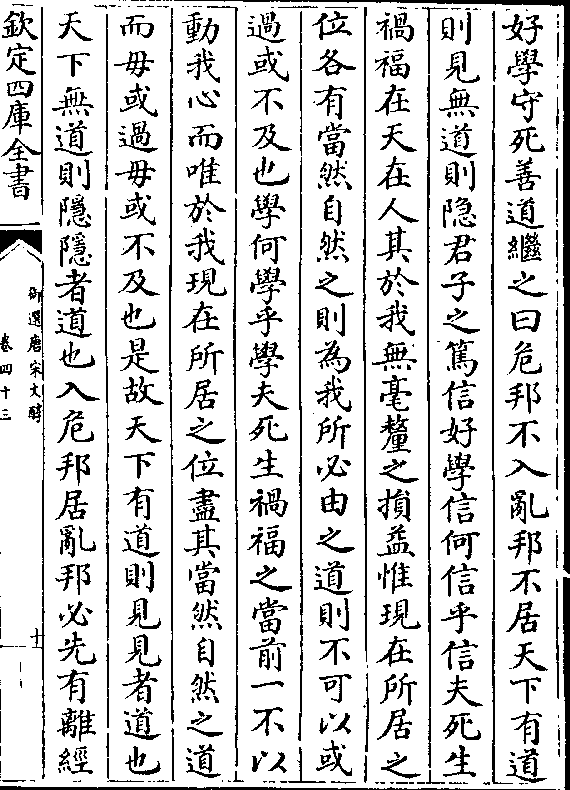 好學守死善道繼之曰危邦不入亂邦不居天下有道
則見無道則隐君子之篤信好學信何信乎信夫死生
禍福在天在人其於我無毫釐之損益惟現在所居之
位各有當然自然之則為我所必由之道則不可以或
過或不及也學何學乎學夫死生禍福之當前一不以
動我心而唯於我現在所居之位盡其當然自然之道
而毋或過毋或不及也是故天下有道則見見者道也
天下無道則隱隱者道也入危邦居亂邦必先有離經
欽定四庫全書
御選唐宋文醇
卷四十三
十